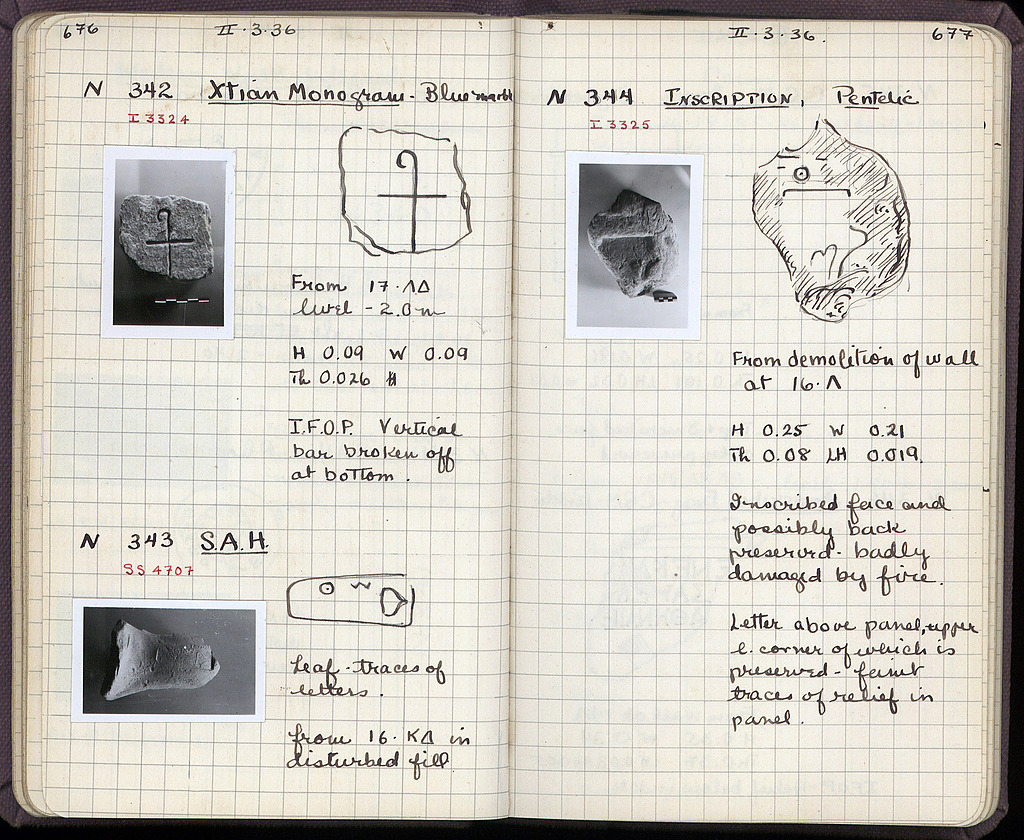 676 II·3·36
N 342 Xtian Monogram - Blue marbl
I 3324
From 17·ΛΔ
level - 2.0 m
H 0.09 W 0.09
Th 0.026
I.F.O.P. Vertical
bar broken off
at bottom.
N 343 S.A.H.
SS 4707
Leaf - traces of
letters.
from 16·ΚΔ in
disturbed fill
II·3·36. 677
N 344 INSCRIPTION, Pentelic
I 3325
From demolition of wall
at 16·Λ
H 0.25 W 0.21
Th 0.08 LH 0.019.
Inscribed face and
possibly back
preserved - badly
damaged by fire.
Letter above panel, upper
l. corner of which is
preserved - faint
traces of relief in
panel.